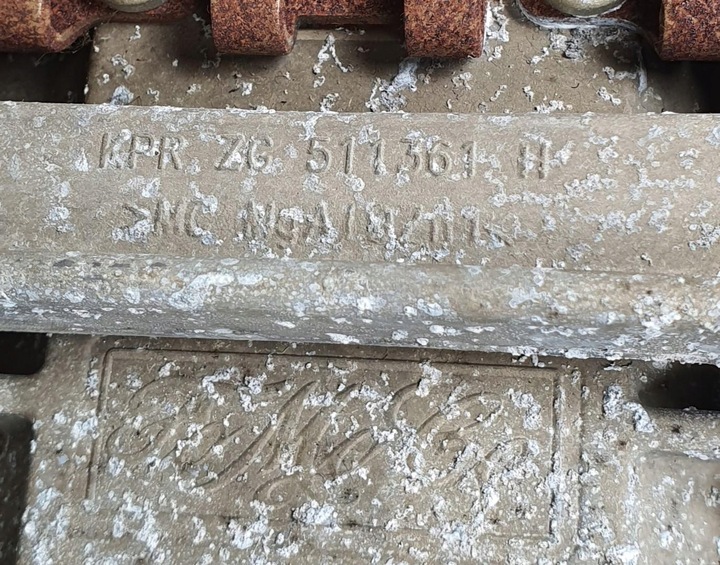 KPR ZG 511361 H
>MC MgAl8Zn1<
FoMoCo